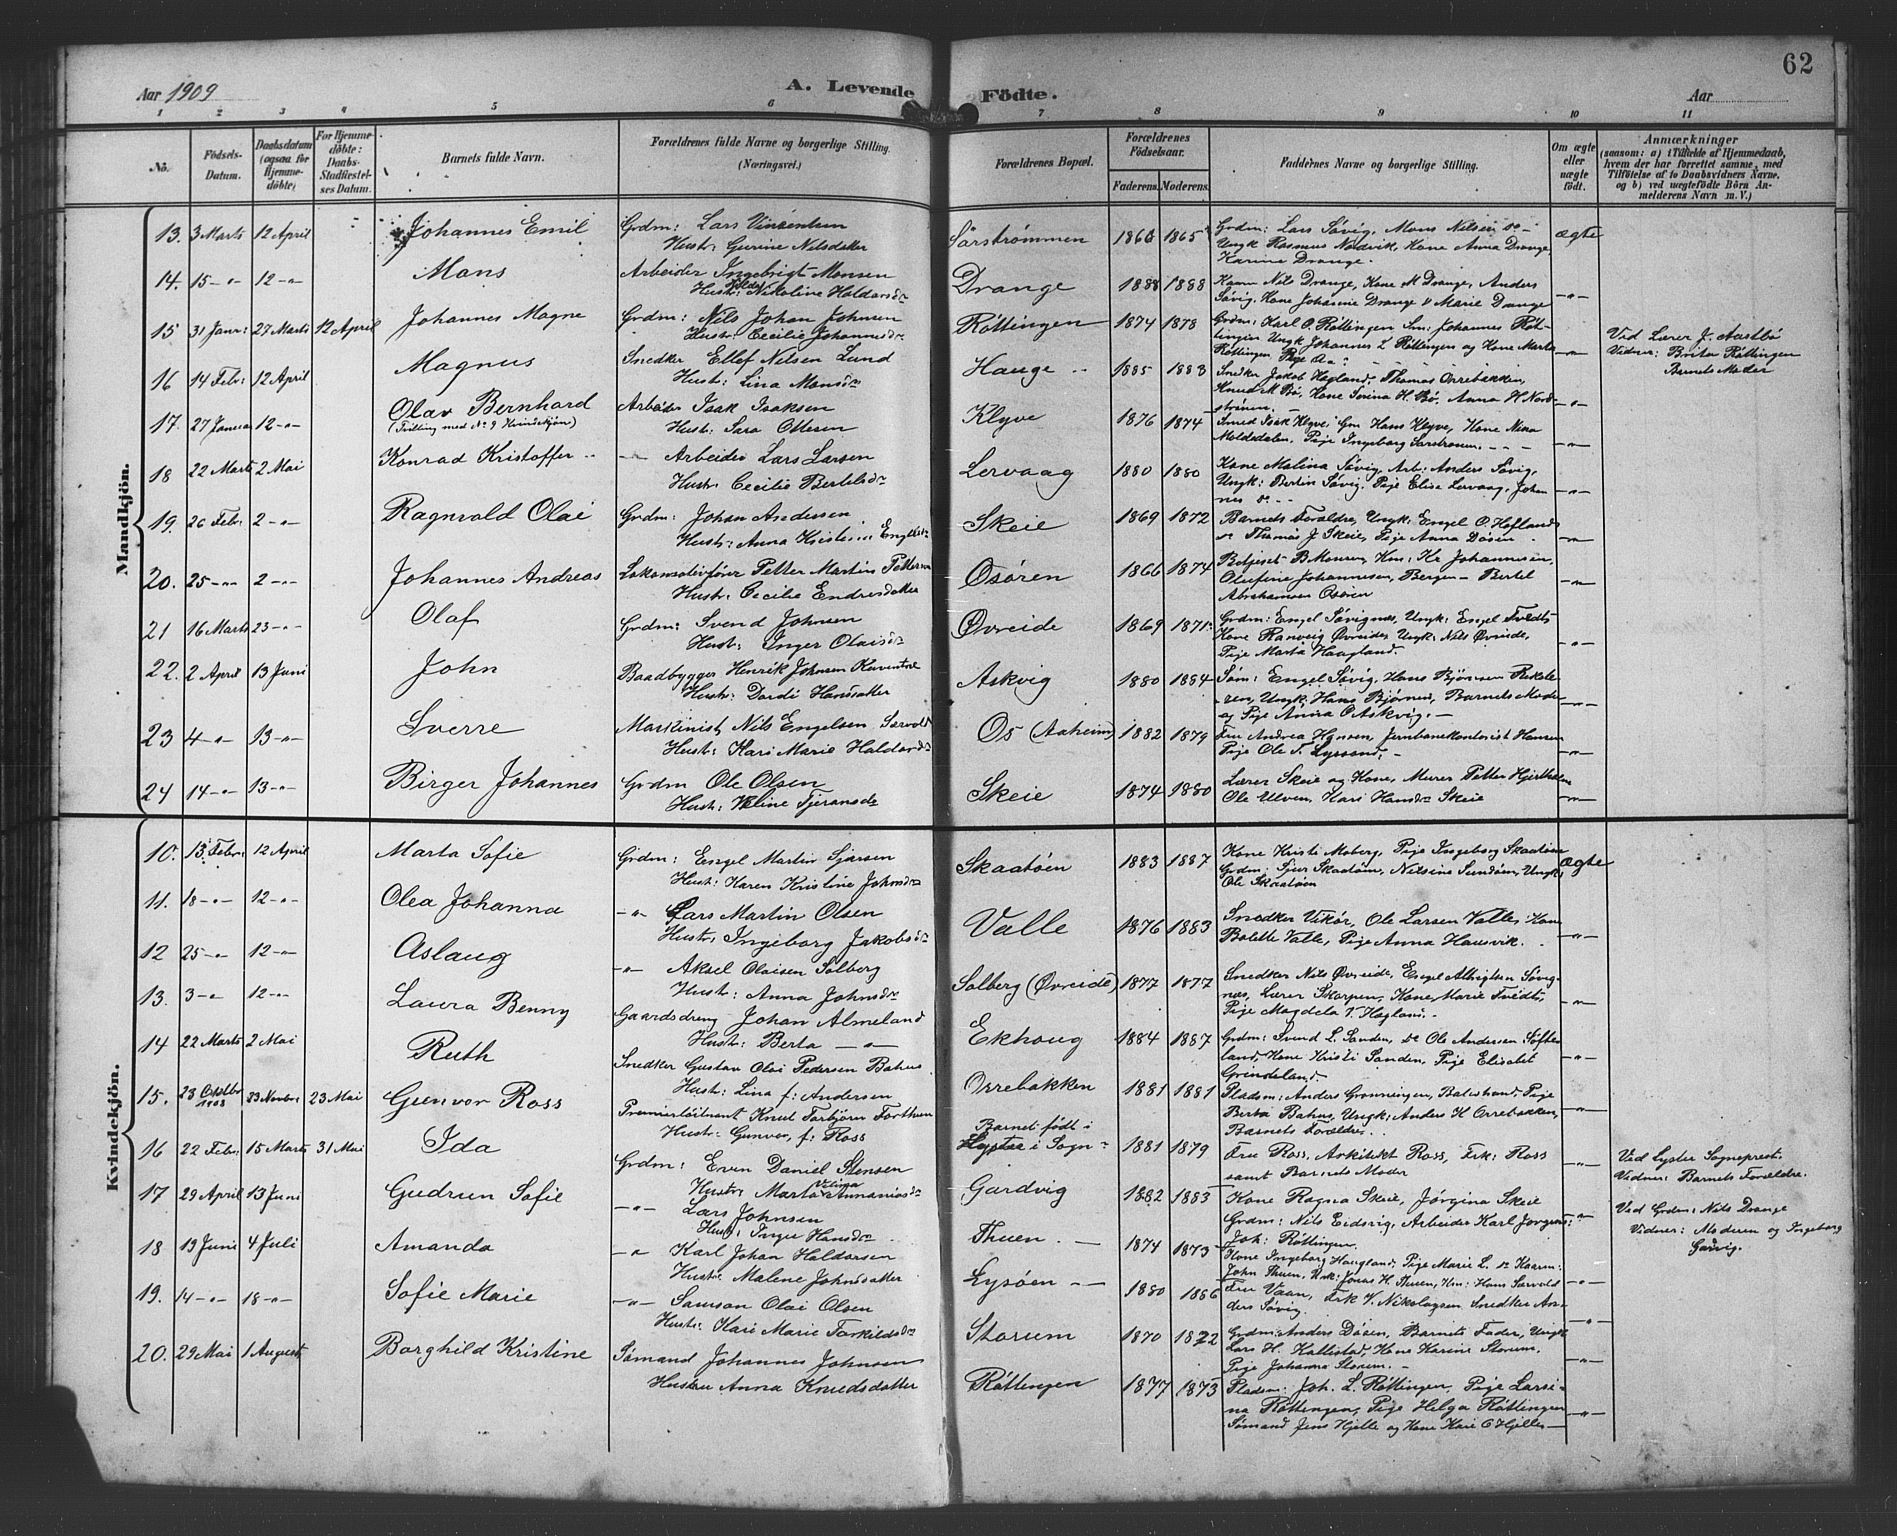 62
Aar 1909
A. Levende
Födte.
Aar
1 2 3 4 5 6 7 8 9 10 11
No.
Födsels-
Datum.
Daabsdatum
(ogsaa for
Hjemme-
döbte)
For Hjemme-
döbte:
Daabs-
Stadfæstel-
ses Datum.
Barnets fulde Navn.
Forældrenes fulde Navne og borgerlige Stilling.
(Næringsvei.)
Forældrenes Bopæl.
Forældrenes
Födselsaar.
Faderens. Moderens.
Faddernes Navne og borgerlige Stilling.
Om ægte
eller
uægte
födt.
Anmærkninger
(saasom: a) i Tilfælde af Hjemmedaab,
hvem der har forrettet samme, med
Tilföielse af to Daabsvidners Navne,
og b) ved uægtefödte Börn An-
melderens Navn m. V.)
Mandkjön.
13. 3 Marts 12 April Johannes Emil Grdm: Lars Vinzentsen
Hustr: Gurine Nilsdatter
Sørstrømmen 1865 Grdm: Lars Søvig, Mons Nilsen do -
Ungk Rasmus Nordvik, Kone Anna Drange,
Karine Drange. ægte
14. 15 -"- 12 -"- Mons Arbeider Ingebrigt Monsen
Hustr: Nikoline Haldorsdr
Drange 1888 1888 Nils Drange, Kone M Drange, Anders
Søvig, Kone Johanne Drange Marie Drange -"-
15 31 Janr: 27 Marts 12 April Johannes Magne Grdm: Nils Johan Johnsen
Hustr: Cecilie Johannesdr
Røttingen 1874 1878 Grdm: Karl O. Røttingen Johannes Røt-
tingen Ungk Johannes L Røttingen og Kone Marta
Røttingen, Pige -"-
Ved Lærer J. Aastbø
Vidner: Brita Røttingen
Barnets Moder
16 14 Febr: 12 April Magnus Snedker Ellef Nilsen Lund
Hustr: Lina Monsdr
Hauge 1885 1883 Snedker Jakob Hagland, Thomas Orrebakken,
Knud M Bø, Kone Serina H. Bø, Anna H Nord-
strøm -"-
17. 27 Januar 12 -"- Olav Bernhard
(Tvilling med No 9 Kvindekjøn)
Arbeider Isak Isaksen
Hustr. Sara Ottesen
Klyve 1876 1874 Smed Isak Klyve, Hans Klyve, Kone Nina
Moldedalen, Pige Ingeborg Sørstrømm. -"-
18 22 Marts 2 Mai Konrad Kristoffer Arbeider Lars Larsen
Hustr. Cecilie Bertelsdr
Lervaag 1880 1880 Kone Malina Søvig, Arb: Anders Søvig,
Ungk: Bertin Søvig, Pige Elisa Lervaag, Johan-
nes do -"-
19. 26 Febr 2 -"- Ragnvald Olai Grdm: Johan Andersen
Hustr: Anna Kristine Engelsdr
Skeie 1869 1872 Barnets Forældre, Ungk: Engel O. Hofland
Thomas J Skeie, Pige Anna Døsen -"-
20. 25 -"- 2 -"- Johannes Andreas Lokomotivfører Petter Martin Pettersen
Hustr. Cecilie Endresdatter
Osøren 1866 1874 B Monsen, Kr Johannesen,
Olufine Johannesen, Bergen - Bertel
Abrahamsen Osøren -"-
21 16 Marts 23 -"- Olaf Grdm: Svend Johnsen
Hustr: Inger Olaisdr
Øvreide 1869 1871 Grdm: Engel Søvignes, Ungk: Engel Tvedt,
Kone Ranveig Øvreide, Ungk: Nils Øvreide,
Pige Marta Haagland. -"-
22. 2 April 13 Juni John Baadbygger Henrik Johnsen Kuventræ
Hustr: Dordi Hansdatter
Askvig 1880 1884 Engel Søvig, Hans Bjørnsen
Ungk: Hans Bjørnes, Barnets Moder
og Pige Anna O. Askvig. - -"-
23 4 -"- 13 -"- Sverre Maskinist Nils Engelsen Særvold
Hustr: Kari Marie Haldorsdr
Os (Aaheim) 1882 1879 Fru Andrea Hansen, Jernbanekontorist Hansen
Pige Ole T. Lyssand, - -"-
24 14 -"- 13 -"- Birger Johannes Grdm Ole Olsen
Hustr: Tjeransdr
Skeie 1874 1880 Lærer Skeie og Kone, Murer Petter Hjertholm
Ole Ulven, Kari Hansdr Skeie -"-
Kvindekjön.
10. 13 Febr: 12 April Marta Sofie Grdm: Engel Martin Sjursen
Hust: Karen Kristine Johnsdr
Skaatøen 1883 1887 Kone Kristi Moberg, Pige Ingeborg Skaatøen
Grdm: Sjur Skaatøen, Nilsine Sundøen, Ungk:
Ole Skaatøen ægte
11. 18 -"- 12 -"- Olea Johanna -"- Lars Martin Olsen
Hustr. Ingeborg Jakobsdr
Valle 1876 1883 Snedker Vikør, Ole Larsen Valle, Kone
Bolette Valle, Pige Anna Hausvik. -"-
12 25 -"- 12 -"- Aslaug -"- Aksel Olaisen Solberg
Hust: Anna Johnsdr
Solberg (Øvreide) 1877 1877 Snedker Nils Øvreide, Engel Albrigtsen Søvig-
næs, Lærer Skorpen, Kone Marie Tvedt,
Pige Magdela V. Hagland. -"-
13. 3 -"- 12 -"- Laura Benny Gaardsdreng Johan Almeland
Hust: Berta -"-
Ekhoug 1884 1887 Grdm: Svend L. Sanden, do Ole Andersen Søfte-
land, Kone Kristi Sanden, Pige Elisabet
Grindeland -"-
14 22 Marts 2 Mai Ruth Snedker Gustav Olai Pedersen Bahus
Hustr: Lina f: Andersen
Orrebakken 1881 1881 Pladsm: Anders Grønningen, Pige
Berta Bahus, Ungk: Anders H Orrebakken,
Barnets Forældre. -"-
15. 23 Oktbr 1908 23 Novbr 23 Mai Gunvor Ross Premierløitnant Knut Torbjørn Forthun
Hustr: Gunvor, f: Ross
Barnet født i
Lyster i Sogn 1881 1879 Fru Ross, Arkitekt Ross, Frk: Ross
samt Barnets Moder -"-
Ved Lyster Sogneprest
Vidner: Barnets Forældre.
16 22 Febr: 15 Marts 31 Mai Ida Grdm: Even Daniel Stensen
Hustr: Marta Ananiasdr
Gardvig 1882 1883 Kone Ragna Skeie, Jørgina Skeie
Grdm: Nils Eidsvig, Arbeider Karl Jørgens:
Joh: Røttingen. -"-
Ved Grdm: Nils Drange
Vidner: Moderen og Ingeborg
Gardvig.
17 29 April 13 Juni Gudrun Sofie -"- Lars Johnsen
Hustr: Inger Hansdr
Thuen. 1874 1873 Kone Ingeborg Haugland, Pige Marie L. do Kaaren:
John Thuen, Ungk: Jonas H. Thuen, Hans Særvold -"-
18 13 Juni 4 Juli Amanda -"- Karl Johan Haldorsen
Hustr Malene Johnsdatter
Lysøen 1880 1886 Fru Vaan, Frk V. Nikolaysen Snedker An-
ders Søvig. -"-
19. 14 -"- 18 -"- Sofie Marie -"- Samson Olai Olsen
Hustr: Kari Marie Torkildsdr
Storum 1870 1872 Grdm: Anders Døsen, Barnets Fader, Ungk
Lars H. Hallestad, Kone Karine Storum,
Pige Johanna Storum. - -"-
20. 29 Mai 1 August Borghild Kristine Sømand Johannes Johnsen
Hustru Anna Knudsdatter
Røttingen 1877 1873 Pladsm: Joh. L. Røttingen, Pige Larsi-
na Røttingen, Pige Helga Røttingen
Sømand Jens Hjelle og Kone Kari O Hjelle -"-